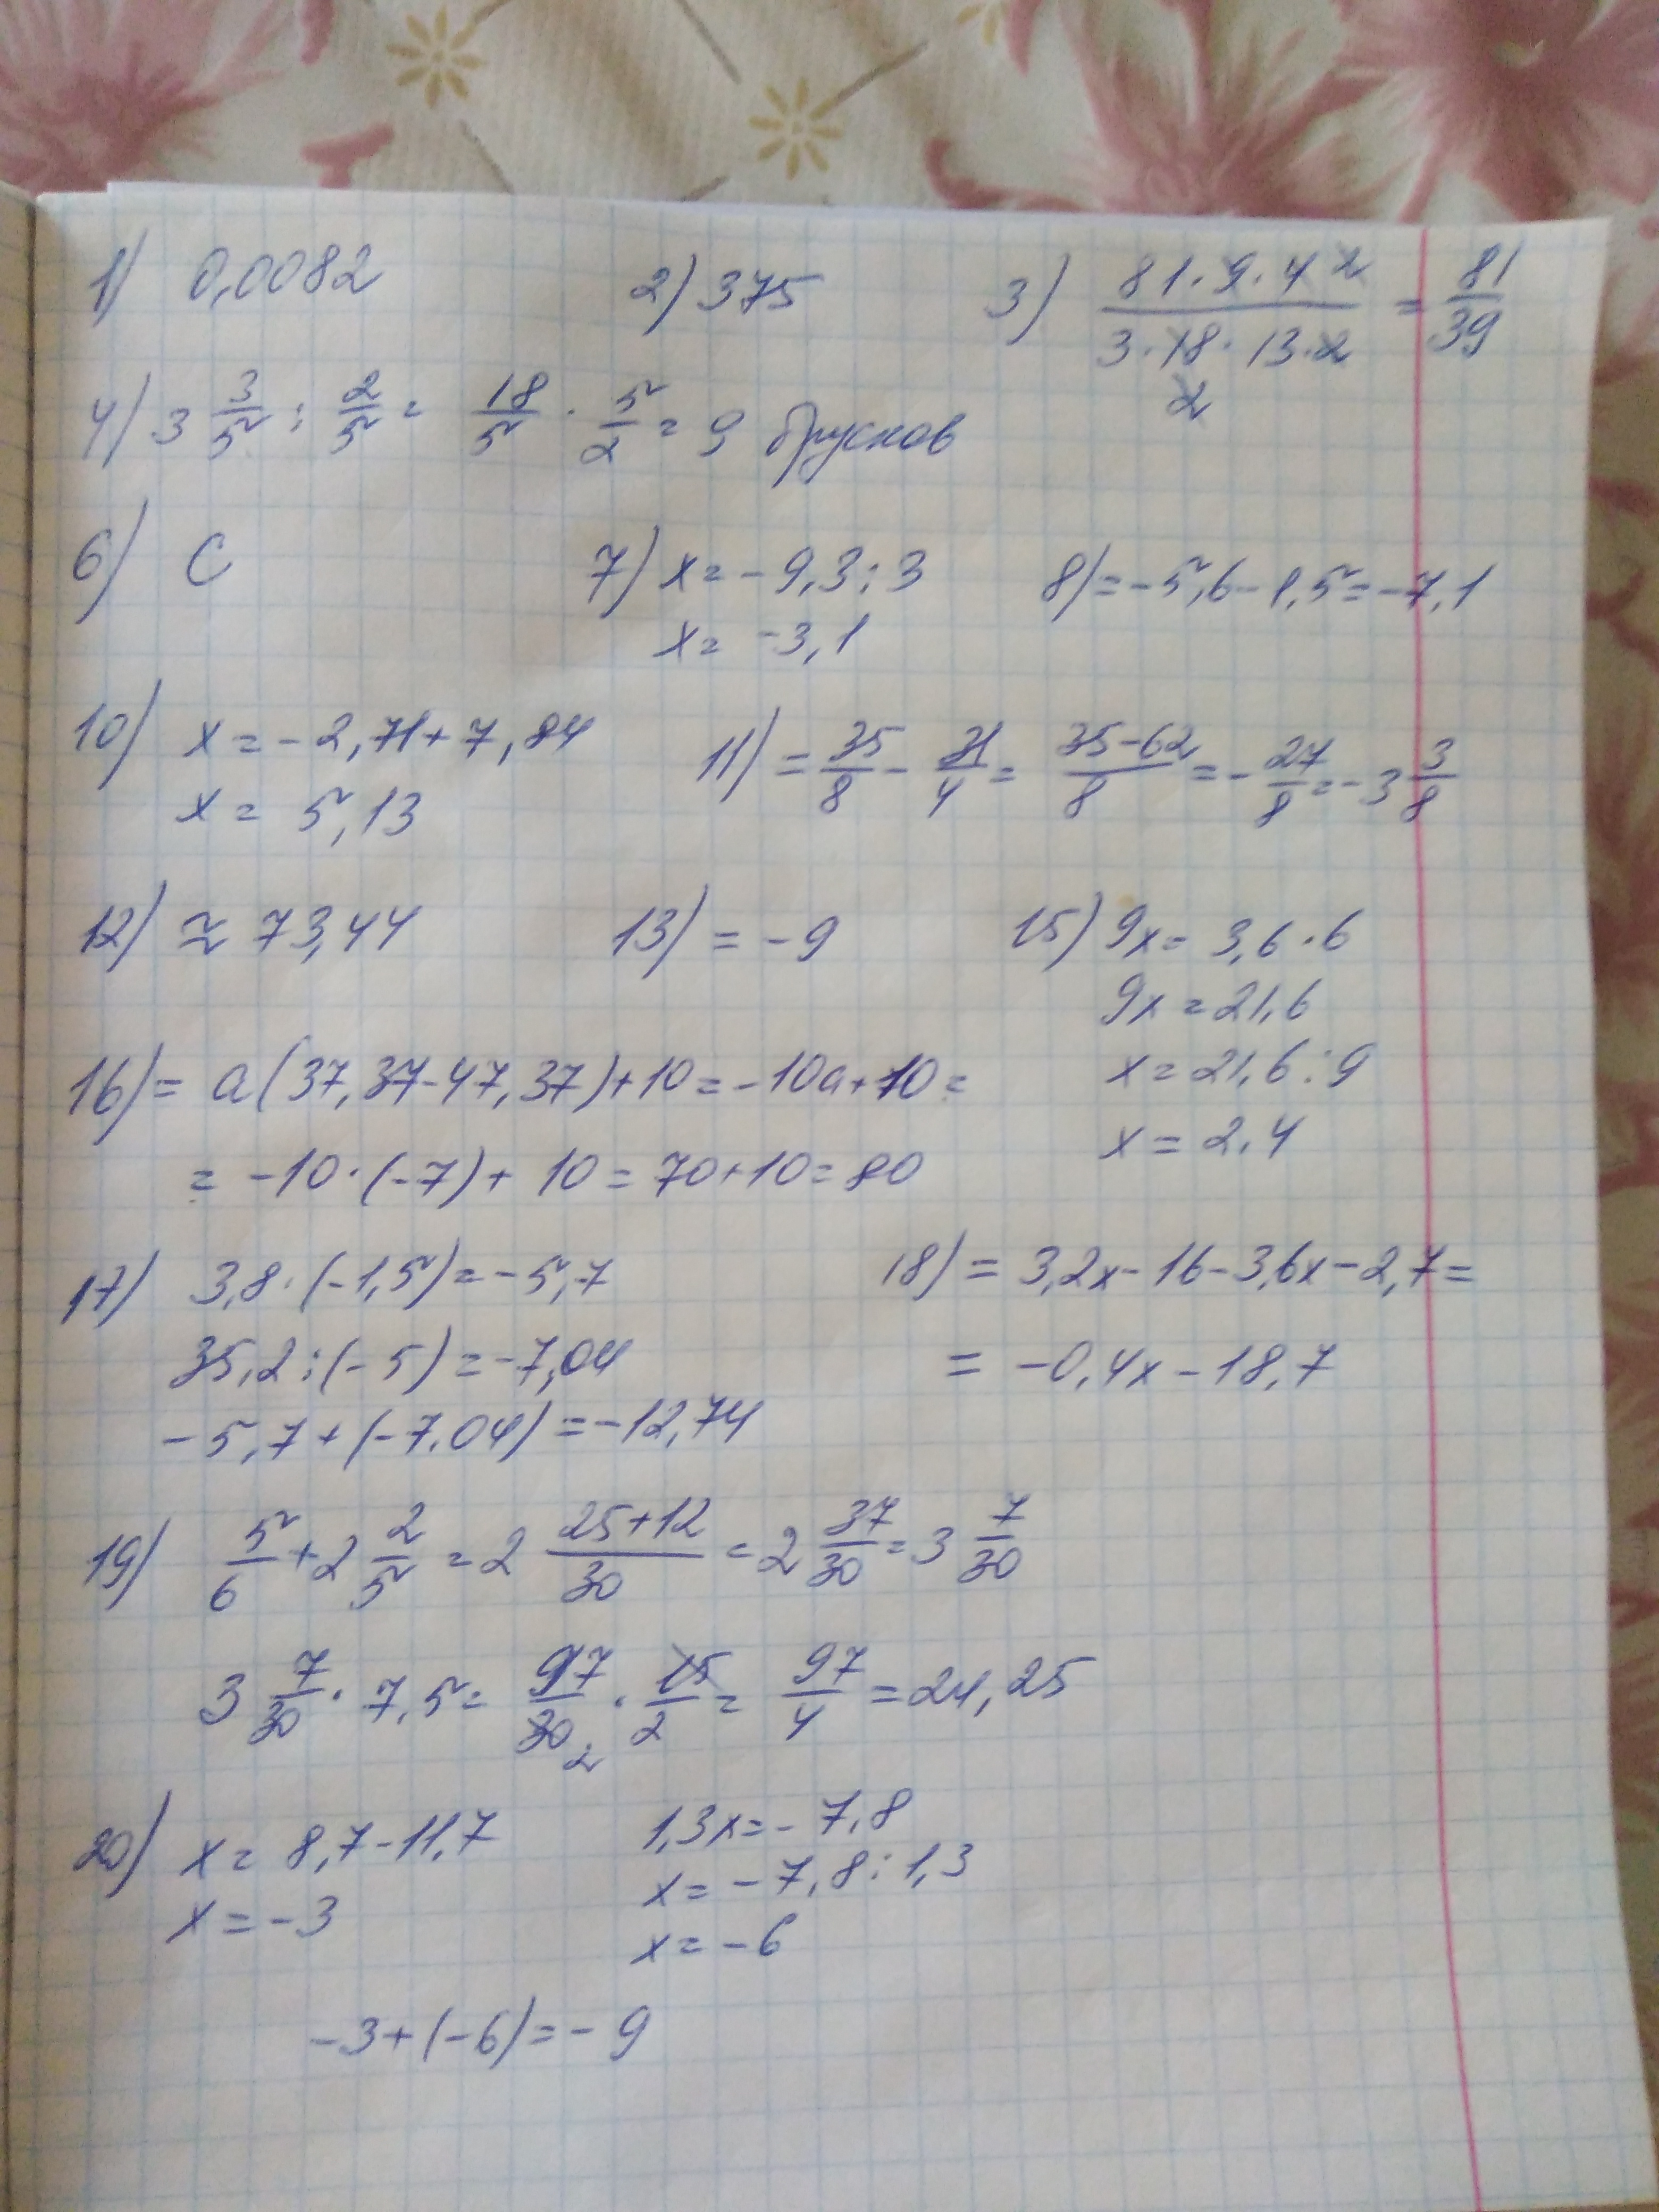 1) 0,0082 2) 375 3) 81·9·4 2 / 3·18·13·2 2 = 81/39
4) 3 3/5 : 2/5 = 18/5 · 5/2 = 9 брусков
6) С 7) x = -9,3 : 3 8) = -5,6 - 1,5 = -7,1
x = -3,1
10) x = -2,71 + 7,84 11) = 35/8 - 31/4 = 35-62/8 = -27/8 = -3 3/8
x = 5,13
12) ≈ 73,44 13) = -9 15) 9x = 3,6·6
9x = 21,6
16) = a(37,37-47,37)+10 = -10a+10 = x = 21,6 : 9
= -10·(-7)+10 = 70+10 = 80 x = 2,4
17) 3,8·(-1,5) = -5,7 18) = 3,2x-16-3,6x-2,7 =
35,2 : (-5) = -7,04 = -0,4x-18,7
-5,7+(-7,04) = -12,74
19) 5/6 + 2 2/5 = 2 25+12/30 = 2 37/30 = 3 7/30
3 7/30 · 7,5 = 97/30 2 · 15/2 = 97/4 = 24,25
20) x = 8,7-11,7 1,3x = -7,8
x = -3 x = -7,8 : 1,3
x = -6
-3+(-6) = -9